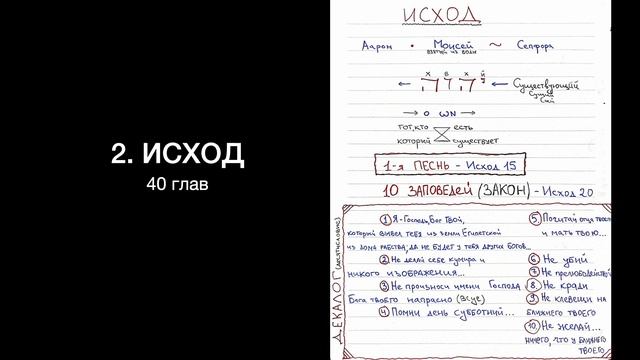 2. ИСХОД
40 глав
ИСХОД
Аарон • Моисей ~ Сепфора
взятый из воды
← ← Существующий
х в х й
Сущий
Сый
→ О ѠN →
тот, кто есть
который существует
1-я ПЕСНЬ - Исход 15
10 ЗАПОВЕДЕЙ (ЗАКОН) - Исход 20
ДЕКАЛОГ (десятисловие)
1 Я-Господь, Бог Твой,
который вывел тебя из земли Египетской
из дома рабства, да не будет у тебя других богов...
2 Не делай себе кумира и
никого изображения...
3 Не произноси имени Господа
Бога твоего напрасно (всуе)
4 Помни день субботний...
5 Почитай отца твоего
и мать твою...
6 Не убий
7 Не прелюбодействуй
8 Не кради
9 Не клевещи на
ближнего твоего
10 Не желай...
ничего, что у ближнего
твоего